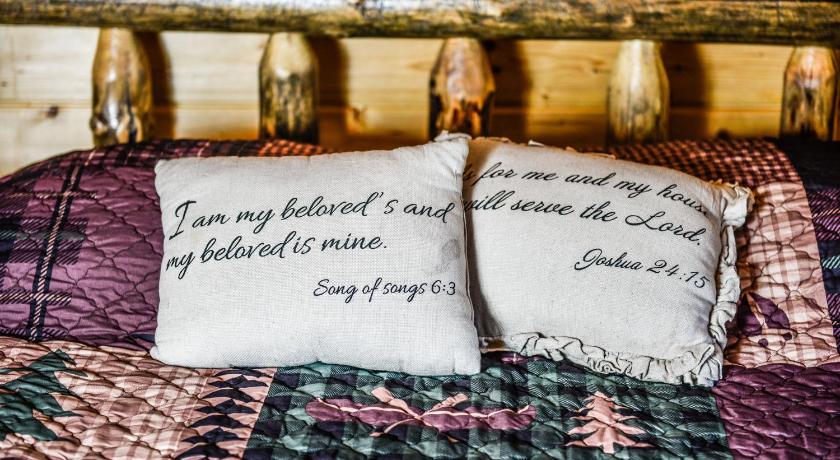 I am my beloved"s and
my beloved is mine.
Song of songs 6:3
for me and my house
will serve the Lord.
Joshua 24:15